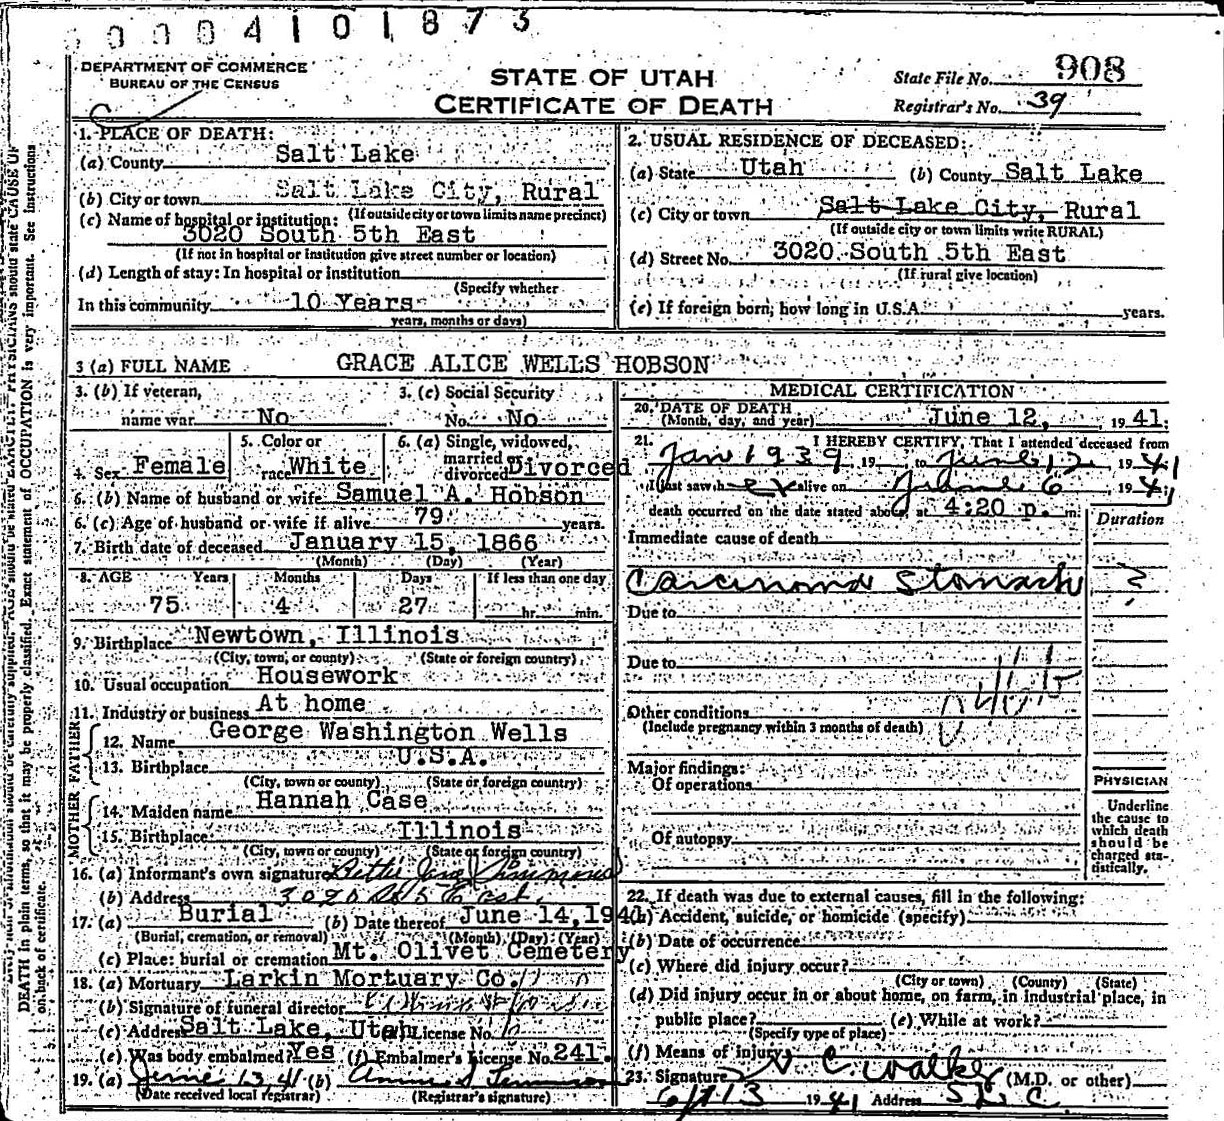 0004101873
DEPARTMENT OF COMMERCE
BUREAU OF THE CENSUS
STATE OF UTAH
CERTIFICATE OF DEATH
State File No. 908
Registrar's No. 39
1. PLACE OF DEATH:
(a) County Salt Lake
(b) City or town Salt Lake City, Rural
(If outside city or town limits name precinct)
(c) Name of hospital or institution:
3020 South 5th East
(If not in hospital or institution give street number or location)
(d) Length of stay: In hospital or institution
(Specify whether
In this community 10 Years
years, months or days)
2. USUAL RESIDENCE OF DECEASED:
(a) State Utah (b) County Salt Lake
(c) City or town Salt Lake City, Rural
(If outside city or town limits write RURAL)
(d) Street No. 3020 South 5th East
(If rural give location)
(e) If foreign born, how long in U.S.A. years.
3 (a) FULL NAME GRACE ALICE WELLS HOBSON
3. (b) If veteran,
name war No
3. (c) Social Security
No. No
4. Sex Female
5. Color or
race White
6. (a) Single, widowed,
married or
divorced Divorced
6. (b) Name of husband or wife Samuel A. Hobson
6. (c) Age of husband or wife if alive 79 years.
7. Birth date of deceased January 15, 1866
(Month) (Day) (Year)
8. AGE Years Months Days If less than one day
75 4 27 hr. min.
9. Birthplace Newtown, Illinois
(City, town, or county) (State or foreign country)
10. Usual occupation Housework
11. Industry or business At home
FATHER
12. Name George Washington Wells
13. Birthplace U.S.A.
(City, town or county) (State or foreign country)
MOTHER
14. Maiden name Hannah Case
15. Birthplace Illinois
(City, town or county) (State or foreign country)
16. (a) Informant's own signature Bettie Jane Simmons
(b) Address 3020 So 5 East.
17. (a) Burial (b) Date thereof June 14, 1941
(Burial, cremation, or removal) (Month) (Day) (Year)
(c) Place: burial or cremation Mt. Olivet Cemetery
18. (a) Mortuary Larkin Mortuary Co.
(b) Signature of funeral director
(c) Address Salt Lake, Utah License No.
(e) Was body embalmed? Yes (f) Embalmer's License No. 241.
19. (a) June 13, 41 (b)
(Date received local registrar) (Registrar's signature)
MEDICAL CERTIFICATION
20. DATE OF DEATH
(Month, day, and year) June 12, 1941.
21. I HEREBY CERTIFY, That I attended deceased from
Jan 1939, 19 to June 12 1941
I last saw her alive on June 6 1941
death occurred on the date stated above, at 4:20 p. m.
Duration
Immediate cause of death
Carcinoma Stomach ?
Due to
Due to
Other conditions
(Include pregnancy within 3 months of death)
Major findings:
Of operations
Of autopsy
PHYSICIAN
Underline
the cause to
which death
should be
charged sta-
tistically.
22. If death was due to external causes, fill in the following:
(a) Accident, suicide, or homicide (specify)
(b) Date of occurrence
(c) Where did injury occur?
(City or town) (County) (State)
(d) Did injury occur in or about home, on farm, in industrial place, in
public place? (e) While at work?
(Specify type of place)
(f) Means of injury
23. Signature C. Walker (M.D. or other)
6/13 1941 Address SLC
DEATH in plain terms, so that it may be properly classified. Exact statement of OCCUPATION is very important. See instructions
on back of certificate.